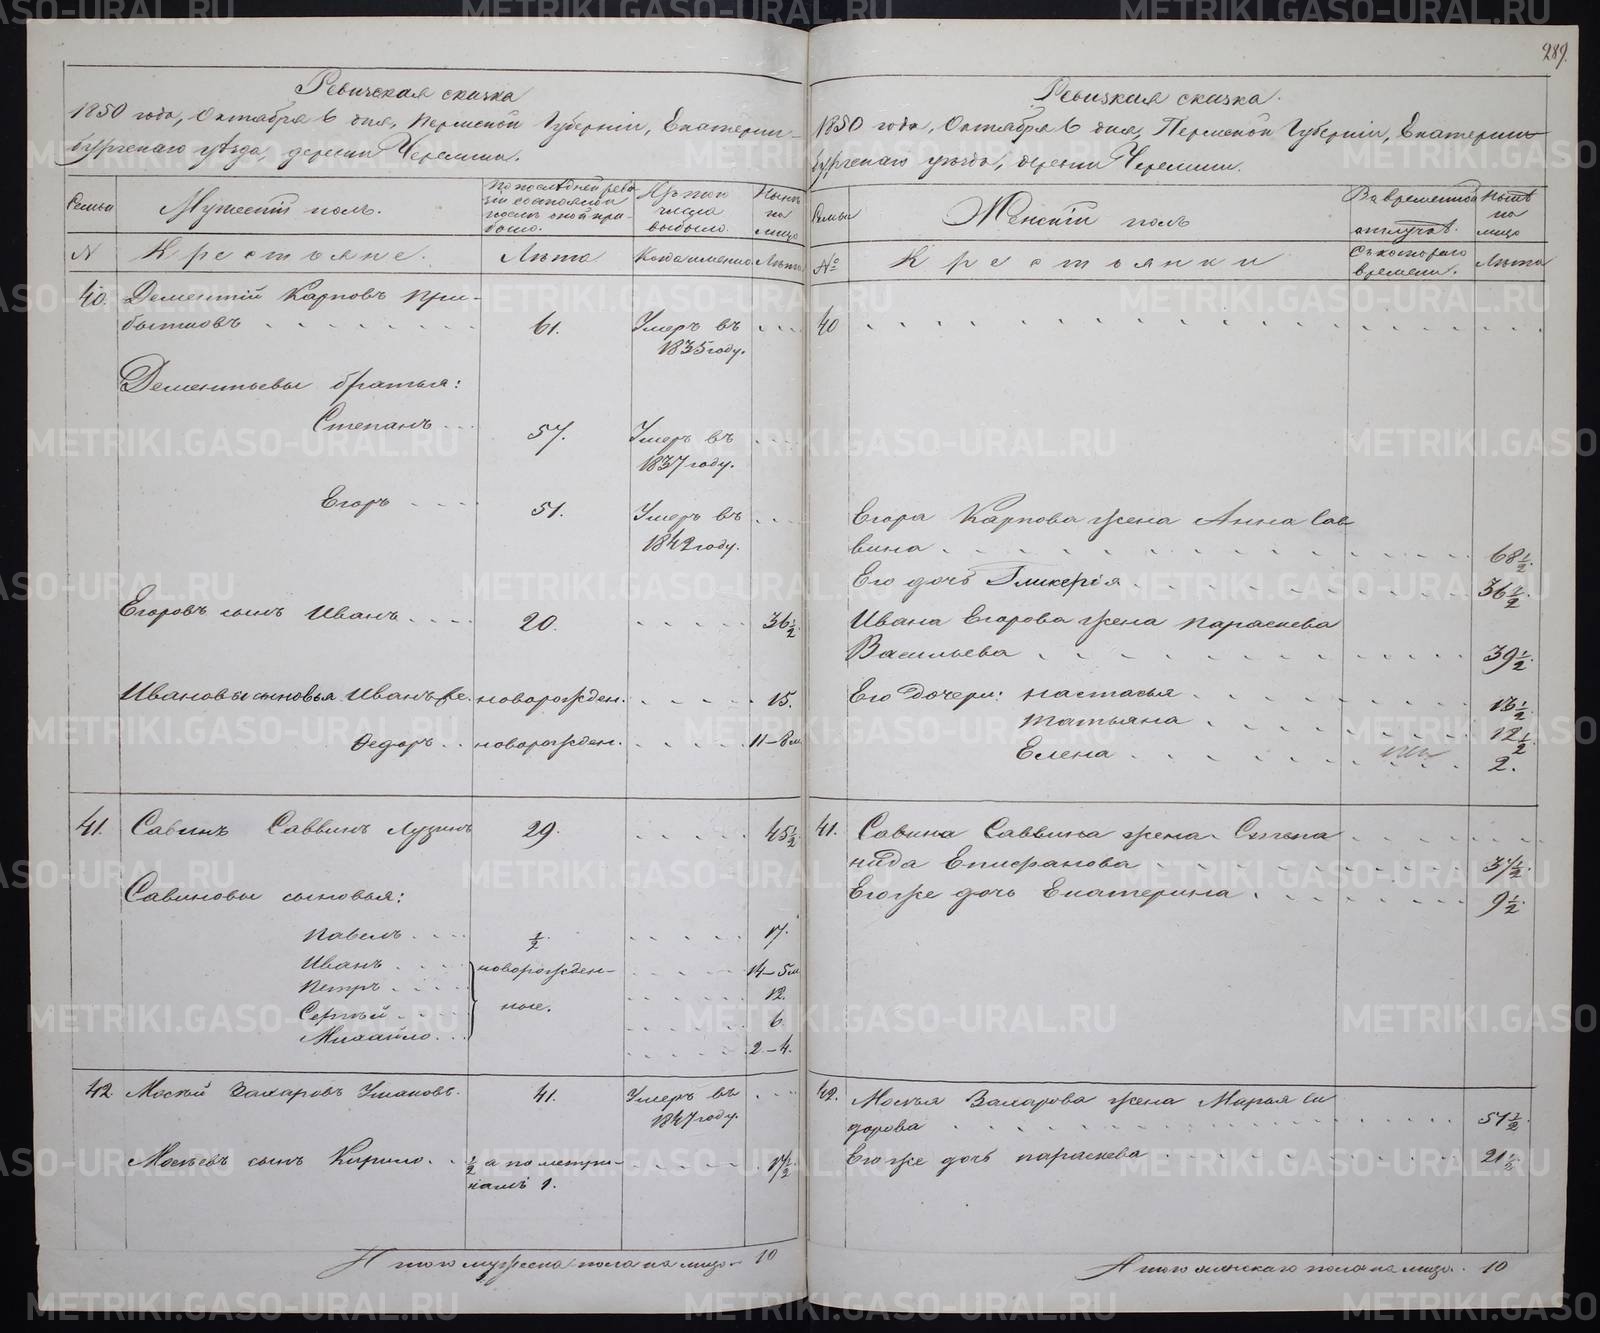 289.
Ревизская сказка
1850 года, Октября 6 дня, Пермской Губерніи, Екатерин-
бургскаго уѣзда, деревни Черемши.
Семьи
Мужескій полъ.
По последней реви-
зіи состояло и
послѣ оной при-
было.
Изъ того
числа
выбыло.
Нынѣ
на
лицо
N
Крестьяне.
Лѣта
Когда именно
Лѣта
40. Дементій Карповъ При-
бытковъ 61. Умеръ въ
1835 году.
Дементьевы братья:
Степанъ 57. Умеръ въ
1837 году.
Егоръ 51. Умеръ въ
1842 году.
Егоровъ сынъ Иванъ 20. 36 1/2.
Ивановы сыновья Иванъ новорожден. 15.
Ѳедоръ новорожден. 11–8 м
41. Савинъ Саввинъ Лузинъ 29. 45 1/2
Савиновы сыновья:
Павелъ 1/2 17.
Иванъ новорожден- 14–5 м
Петръ 12.
Сергѣй ные. 6
Михайло 2–4.
42. Мосѣй Захаровъ Ушаковъ. 41. Умеръ въ
1847 году.
Мосѣевъ сынъ Кирило 1/2 а по метри-
камъ 1. 17 1/2
Итого мужеска пола на лицо 10
Ревизкая сказка.
1850 года, Октября 6 дня, Пермской Губерніи, Екатерин
бургскаго уѣзда, деревни Черемши.
Семьи
Женскій полъ
Во временной
отлучкѣ.
Нынѣ
на
лицо
№
Крестьянки
Съ котораго
времени.
Лѣта
40
Егора Карпова жена Анна Сав
вина 68 1/2.
Его дочь Гликерія 36 1/2.
Ивана Егорова жена Параскева
Васильева 39 1/2.
Его дочери: Настасья 13 1/2.
Татьяна 12 1/2
Елена 2.
41. Савина Саввина жена Степа
нида Епифанова 37 1/2.
Егоже дочь Екатерина 9 1/2.
42. Мосѣя Захарова жена Марья Си
дорова 51 1/2
Егоже дочь Параскева 21 1/2
Итого женскаго пола на лицо. 10
METRIKI.GASO-URAL.RU